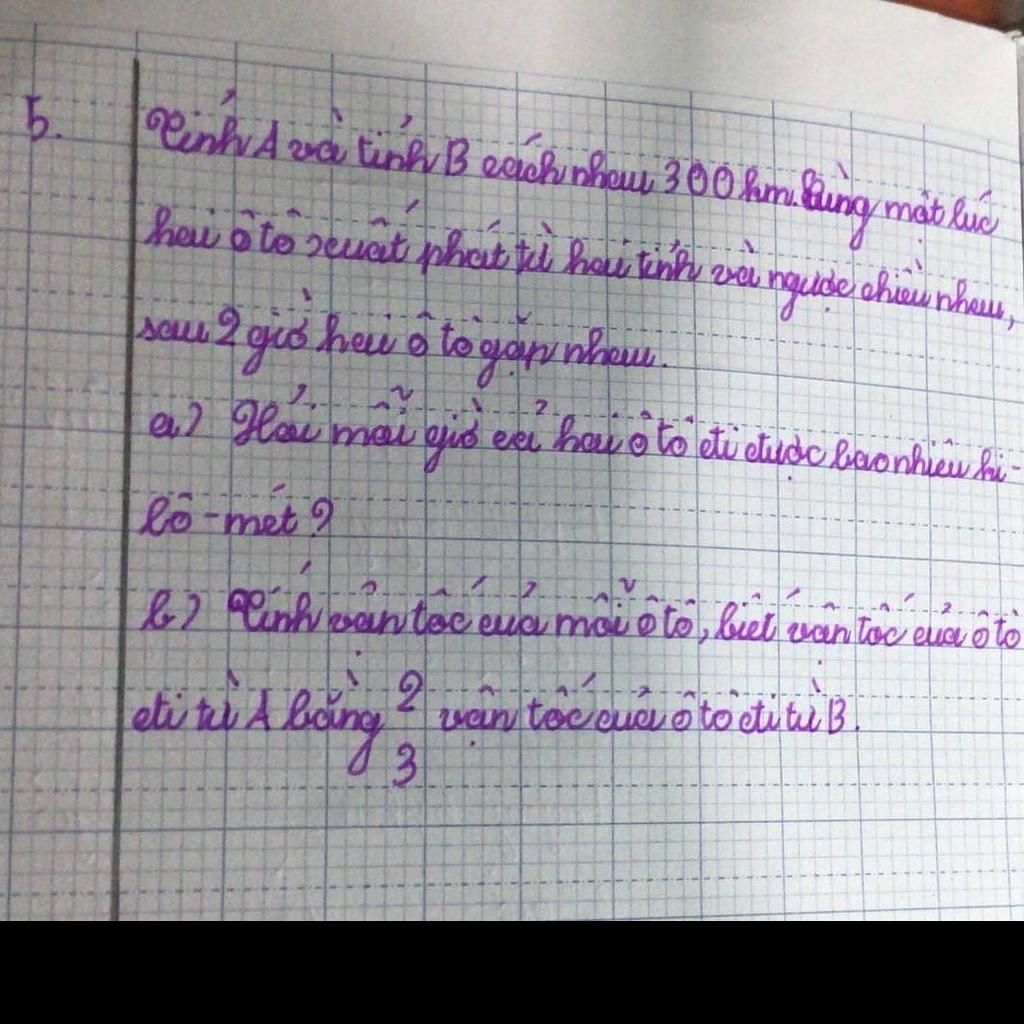 5. Tỉnh A và tỉnh B cách nhau 300km. Cùng một lúc
hai ô tô xuất phát từ hai tỉnh và ngược chiều nhau,
sau 2 giờ hai ô tô gặp nhau.
a) Hỏi mỗi giờ cả hai ô tô đi được bao nhiêu ki-
lô-mét?
b) Tính vận tốc của mỗi ô tô, biết vận tốc của ô tô
đi từ A bằng 2/3 vận tốc của ô tô đi từ B.